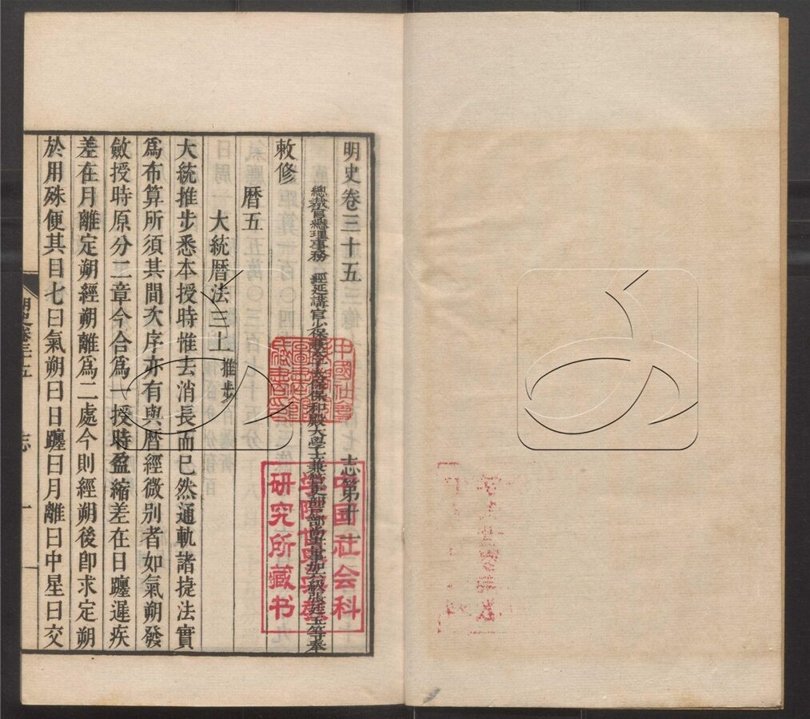 明史卷三十五 志第十
總裁官總理事務 經筵講官少保兼太子太保保和殿大學士兼管吏部戶部尚書事加六級張廷玉等奉
敕修
暦五
大統暦法三上 推步
大統推步悉本授時惟去消長而已然通軌諸捷法實
爲布算所須其間次序亦有與暦經微別者如氣朔發
斂授時原分二章今合爲一授時盈縮差在日躔遲疾
差在月離定朔經朔離爲二處今則經朔後卽求定朔
於用殊便其目七曰氣朔曰日躔曰月離曰中星曰交
明史卷三十五 志 一
中国社会科
学院
研究所藏书
中國社會